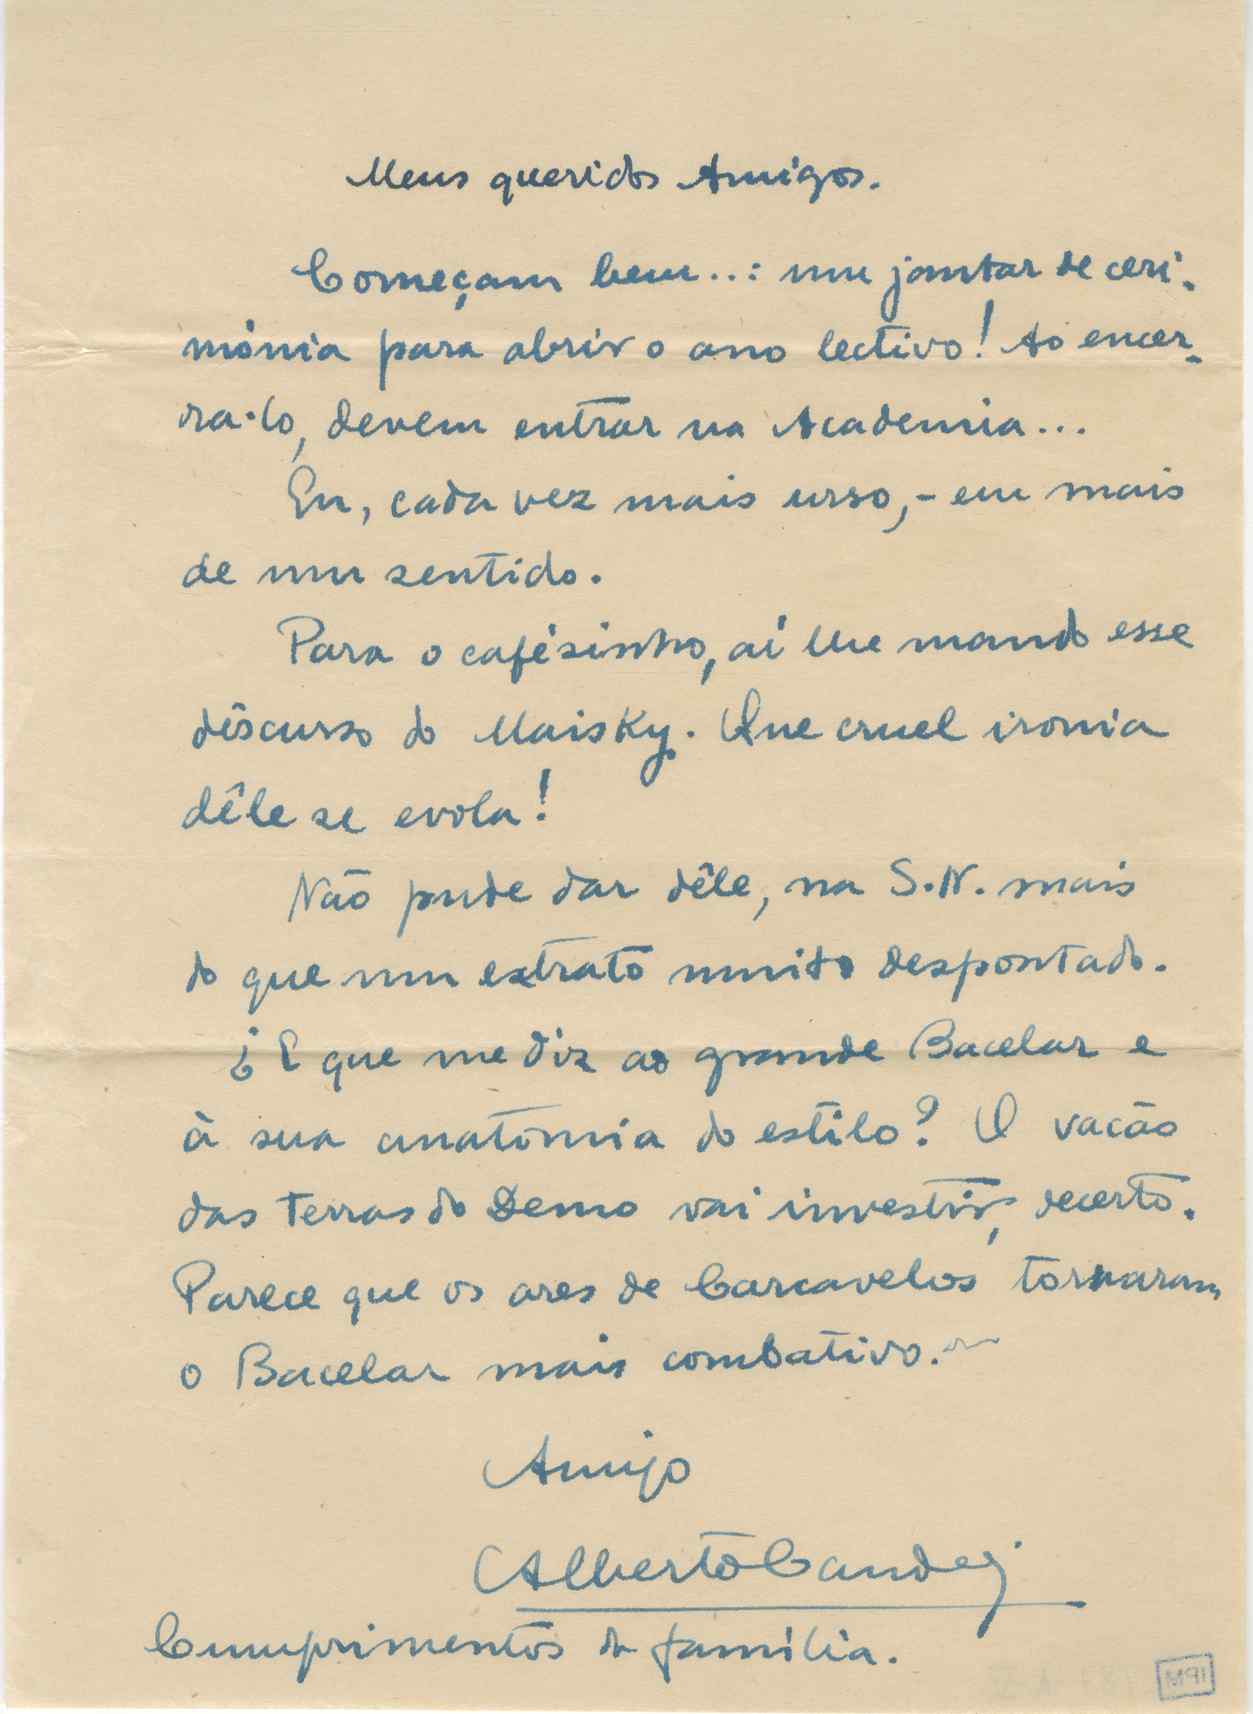 Meus queridos Amigos.
Começam bem..: um jantar de ceri-
mónia para abrir o ano lectivo! Ao encer-
ra-lo, devem entrar na Academia...
Eu, cada vez mais urso, - em mais
de um sentido.
Para o cafésinho, aí lhe mando esse
discurso do Maisky. Que cruel ironia
dêle se evola!
Não pude dar dêle, na S.N. mais
do que um extrato muito despontado.
¿E que me diz ao grande Bacelar e
à sua anatomia do estilo? O vacão
das Terras do Demo vai investir, decerto.
Parece que os ares de Carcavelos tornaram
o Bacelar mais combativo.
Amigo
Alberto Candej
Cumprimentos da família.
IPM